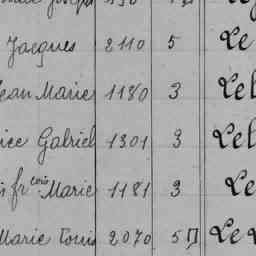 Jacques 2110 5 Le
Jean Marie 1180 3 Lel
Gabriel 1301 3 Lel
fr cois Marie 1181 3 Le
Marie Louis 2070 5 Le L